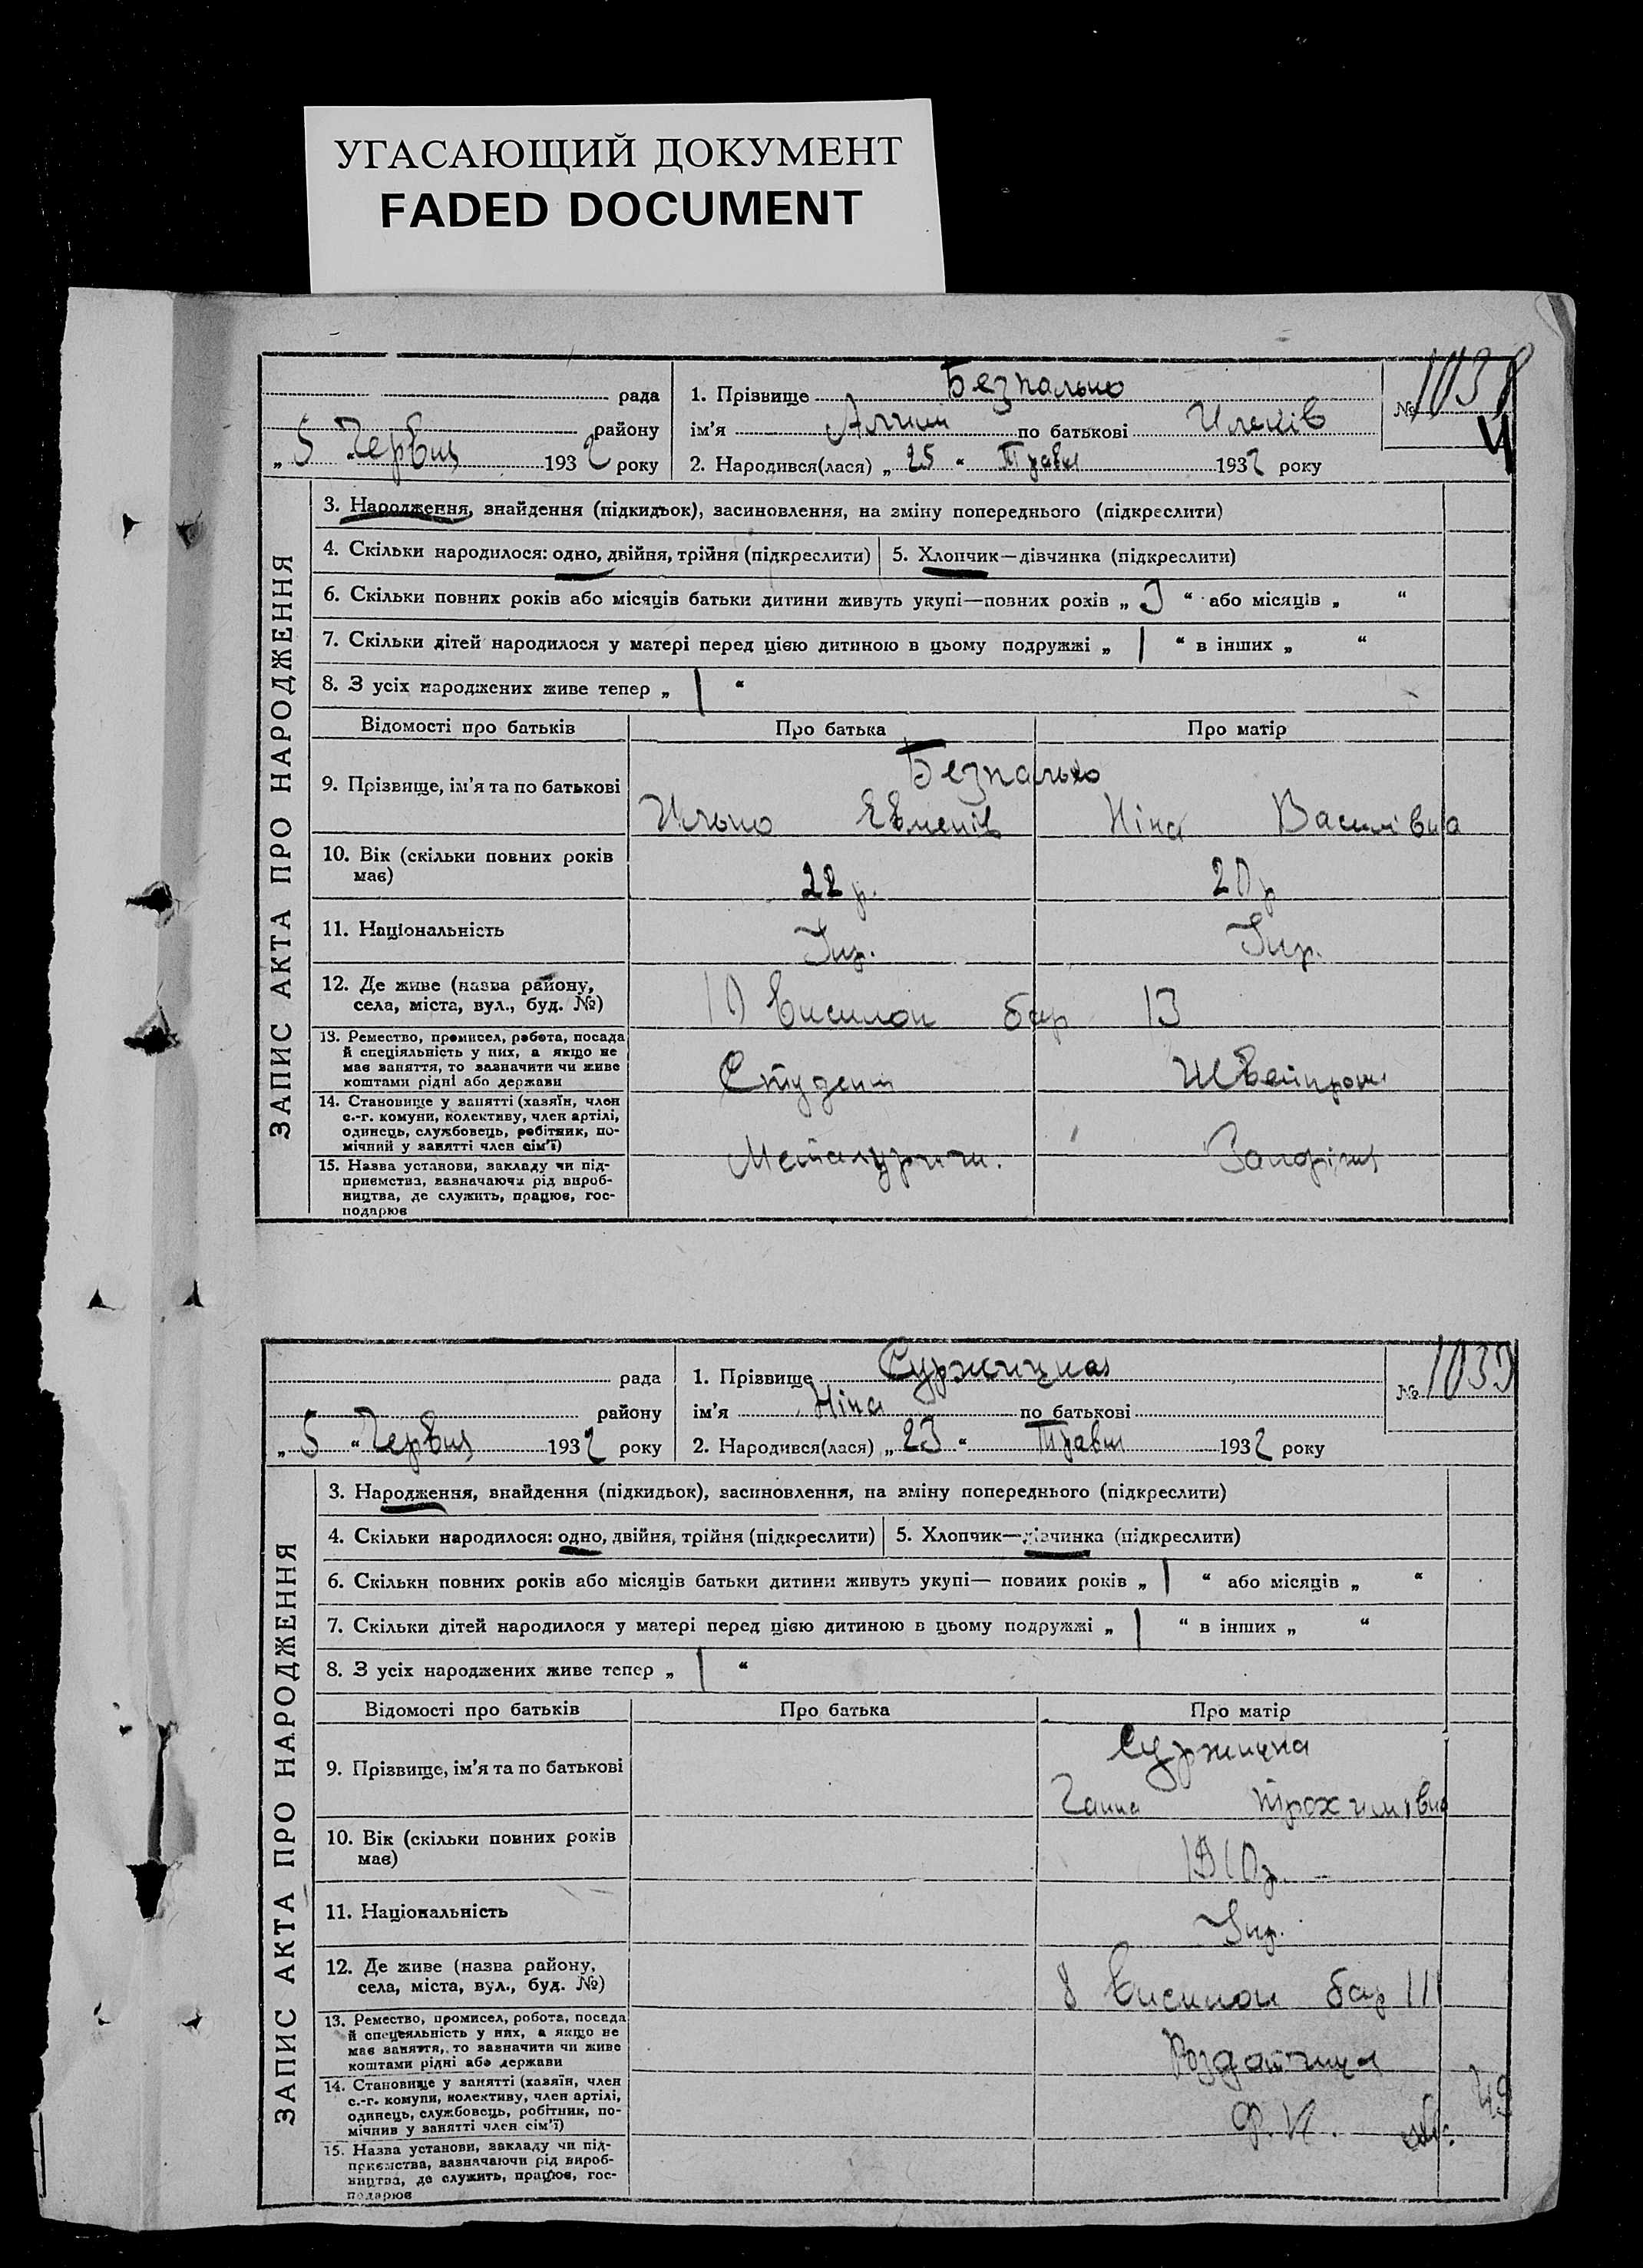 УГАСАЮЩИЙ ДОКУМЕНТ
FADED DOCUMENT
рада
району
„ 5 “ Червня 1932 року
1. Прізвище Безпалько
ім’я по батькові
2. Народився(лася) „ 25 “ Травн 1932 року
№ 1038
ЗАПИС АКТА ПРО НАРОДЖЕННЯ
3. Народження, знайдення (підкидьок), засиновлення, на зміну попереднього (підкреслити)
4. Скільки народилося: одно, двійня, трійня (підкреслити)
5. Хлопчик—дівчинка (підкреслити)
6. Скільки повних років або місяців батьки дитини живуть укупі—повних років „ 3 “ або місяців „ “
7. Скільки дітей народилося у матері перед цією дитиною в цьому подружжі „ 1 “ в інших „ “
8. З усіх народжених живе тепер „ 1 “
Відомості про батьків
Про батька
Про матір
9. Прізвище, ім’я та по батькові
Безпалько
Ілько Ніна Василівна
10. Вік (скільки повних років
має)
22 р.
20 р
11. Національність
Укр.
Укр.
12. Де живе (назва району,
села, міста, вул., буд. №)
10 виселок бар 13
13. Ремество, промисел, робота, посада
й спеціяльність у них, а якщо не
має заняття, то зазначити чи живе
коштами рідні або держави
Студент
Швейпром
14. Становище у занятті (хазяїн, член
с.-г. комуни, колективу, член артілі,
одинець, службовець, робітник, по-
мічний у занятті член сім’ї)
15. Назва установи, закладу чи під-
приємства, зазначаючи рід вироб-
ництва, де служить, працює, гос-
подарює
Металургичн.
Запоріжж
рада
району
„ 5 “ Червня 1932 року
1. Прізвище
ім’я Ніна по батькові
2. Народився(лася) „ 23 “ Травн 1932 року
№ 1039
ЗАПИС АКТА ПРО НАРОДЖЕННЯ
3. Народження, знайдення (підкидьок), засиновлення, на зміну попереднього (підкреслити)
4. Скільки народилося: одно, двійня, трійня (підкреслити)
5. Хлопчик—дівчинка (підкреслити)
6. Скільки повних років або місяців батьки дитини живуть укупі— повних років „ | “ або місяців „ “
7. Скільки дітей народилося у матері перед цією дитиною в цьому подружжі „ | “ в інших „ “
8. З усіх народжених живе тепер „ | “
Відомості про батьків
Про батька
Про матір
9. Прізвище, ім’я та по батькові
Ганна Трохимівна
10. Вік (скільки повних років
має)
1910 р.
11. Національність
Укр.
12. Де живе (назва району,
села, міста, вул., буд. №)
8 виселок бар 111
13. Ремество, промисел, робота, посада
й спецеяльність у них, а якщо не
має заняття, то зазначити чи живе
коштами рідні або держави
Роздатчиця
14. Становище у занятті (хазяїн, член
с.-г. комуни, колективу, член артілі,
одинець, службовець, робітник, по-
мічнив у занятті член сім’ї)
Ф. К. 49
15. Назва установи, закладу чи під-
приємства, зазначаючи рід вироб-
ництва, де служить, працює, гос-
подарює